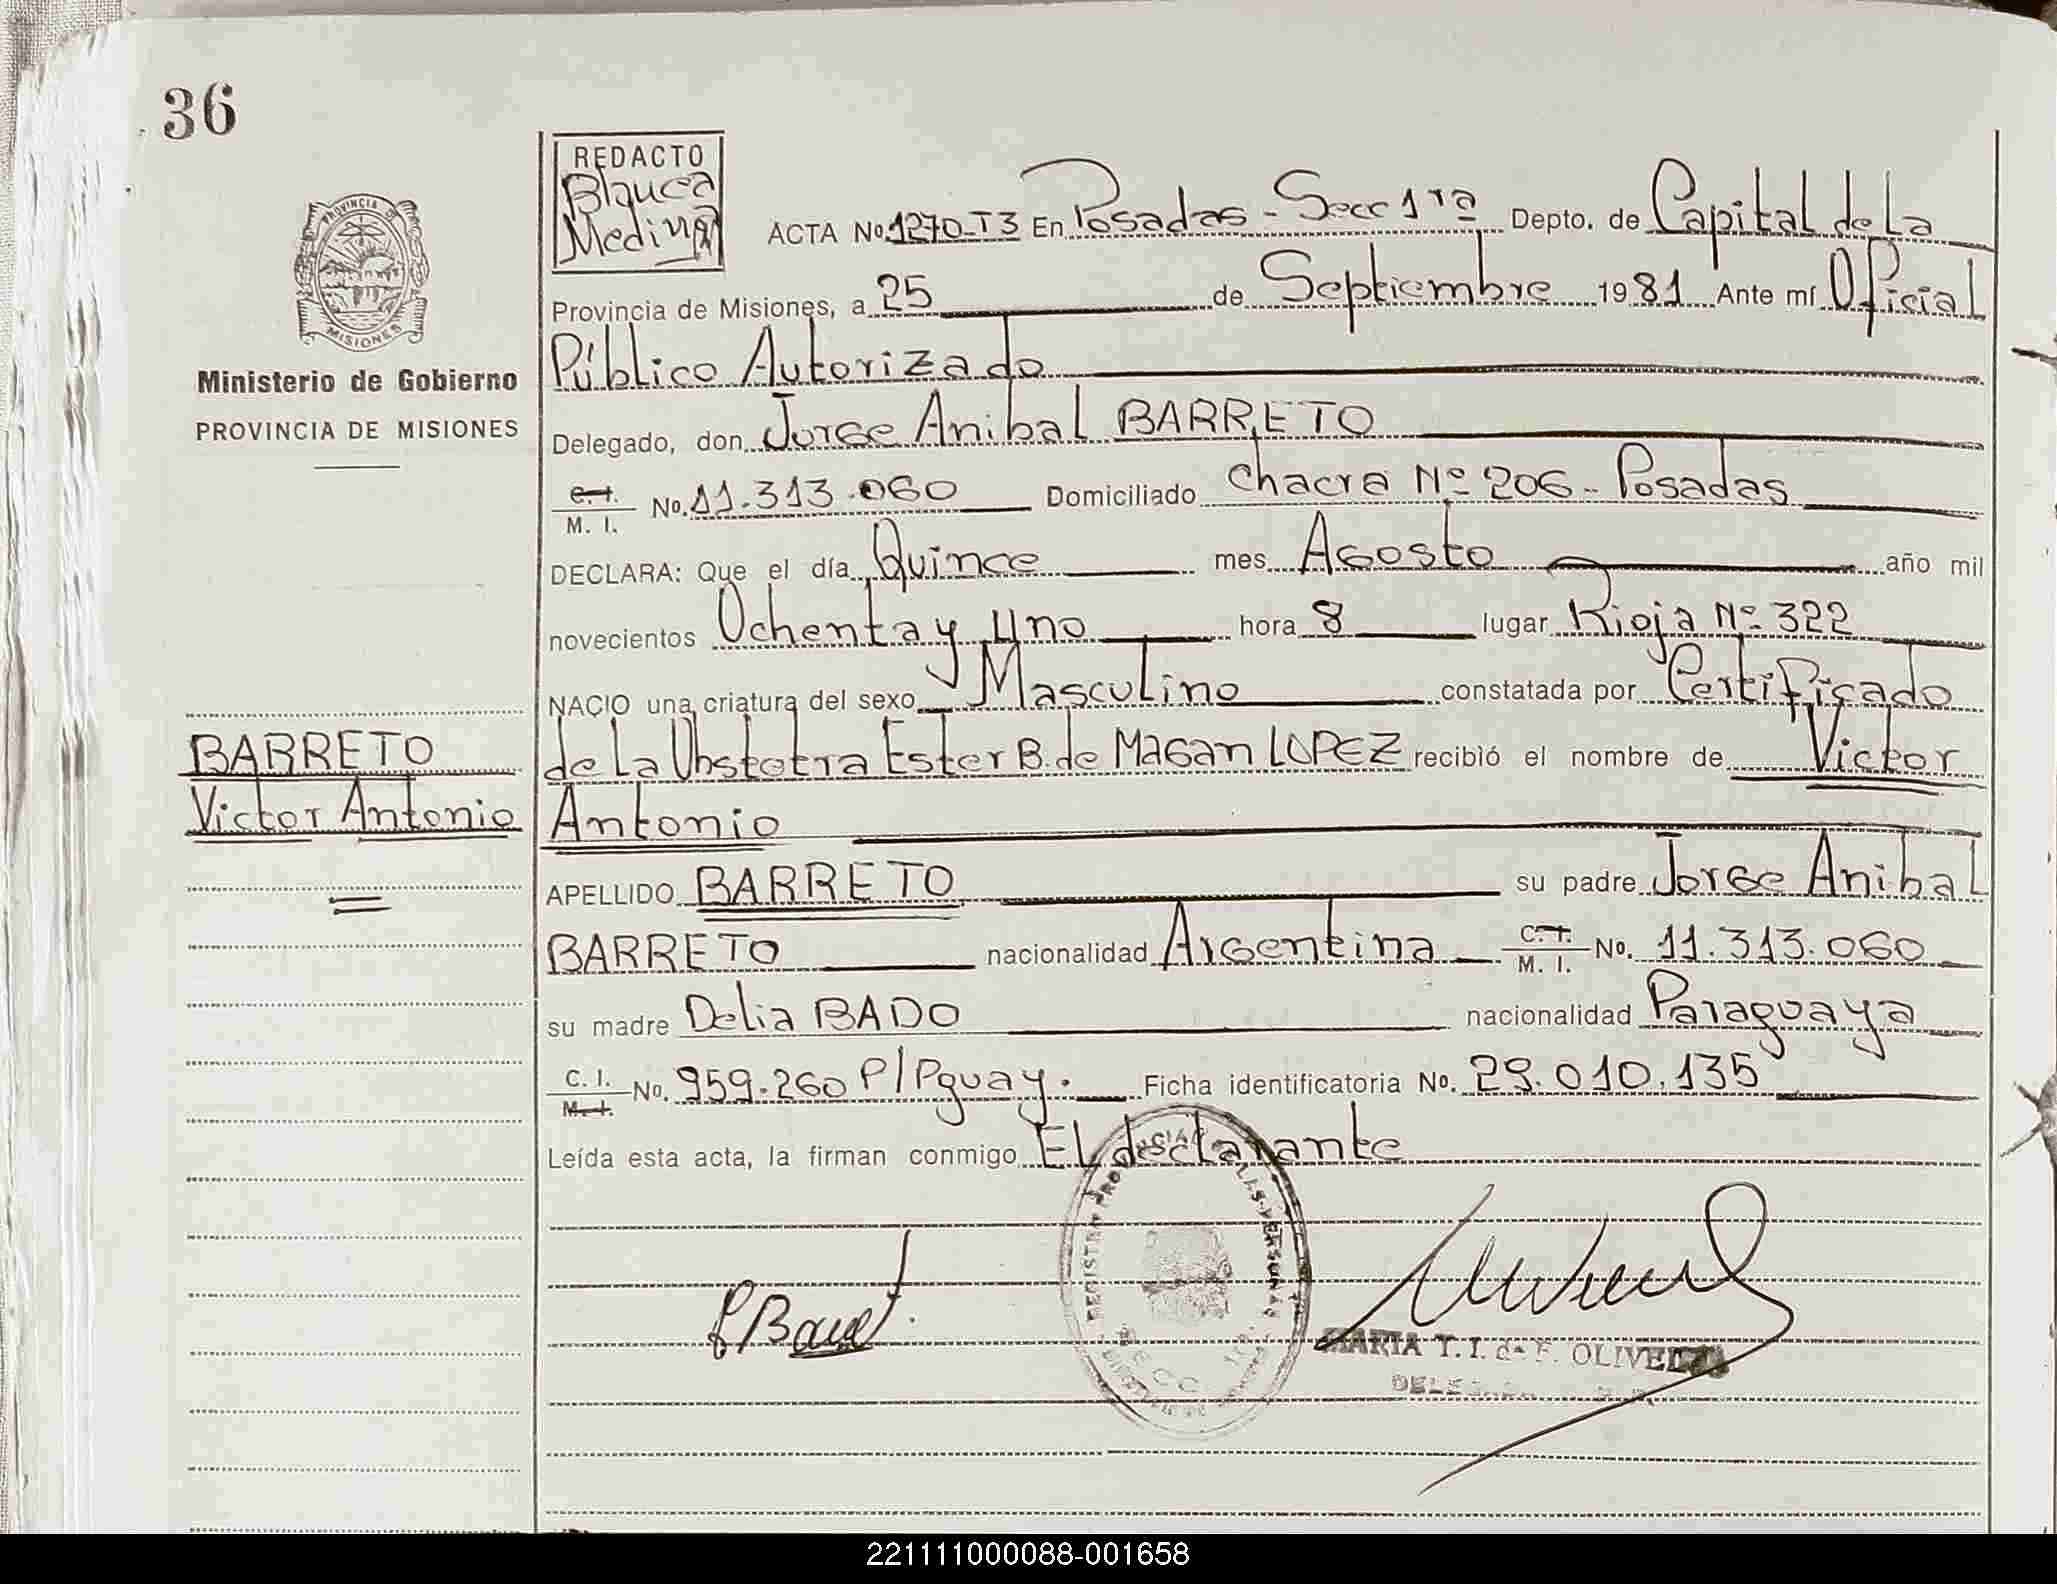 36
REDACTO
Blanca
Medina
ACTA No. 1270-T3 En Posadas - Secc 1ra Depto. de Capital de La
Provincia de Misiones, a 25 de Septiembre 1981 Ante mí Oficial
Público Autorizado
PROVINCIA DE
MISIONES
Ministerio de Gobierno
PROVINCIA DE MISIONES
Delegado, don Jorge Anibal BARRETO
C. I.
M. I. No. 11.313.060 Domiciliado chacra Nº 206 - Posadas
DECLARA: Que el día Quince mes Agosto año mil
novecientos Ochenta y Uno hora 8 lugar Rioja Nº 322
NACIO una criatura del sexo Masculino constatada por Certificado
de La Obstetra Ester B. de Magan LOPEZ recibió el nombre de Victor
Antonio
BARRETO
Victor Antonio
APELLIDO BARRETO su padre Jorge Anibal
BARRETO nacionalidad Argentina C. I. M. I. No. 11.313.060
su madre Delia BADO nacionalidad Paraguaya
C. I.
M. I. No. 959.260 P/Pguay. Ficha identificatoria No. 29.010.135
Leída esta acta, la firman conmigo El declarante
MARIA T. I. de F. OLIVEIRA
221111000088-001658